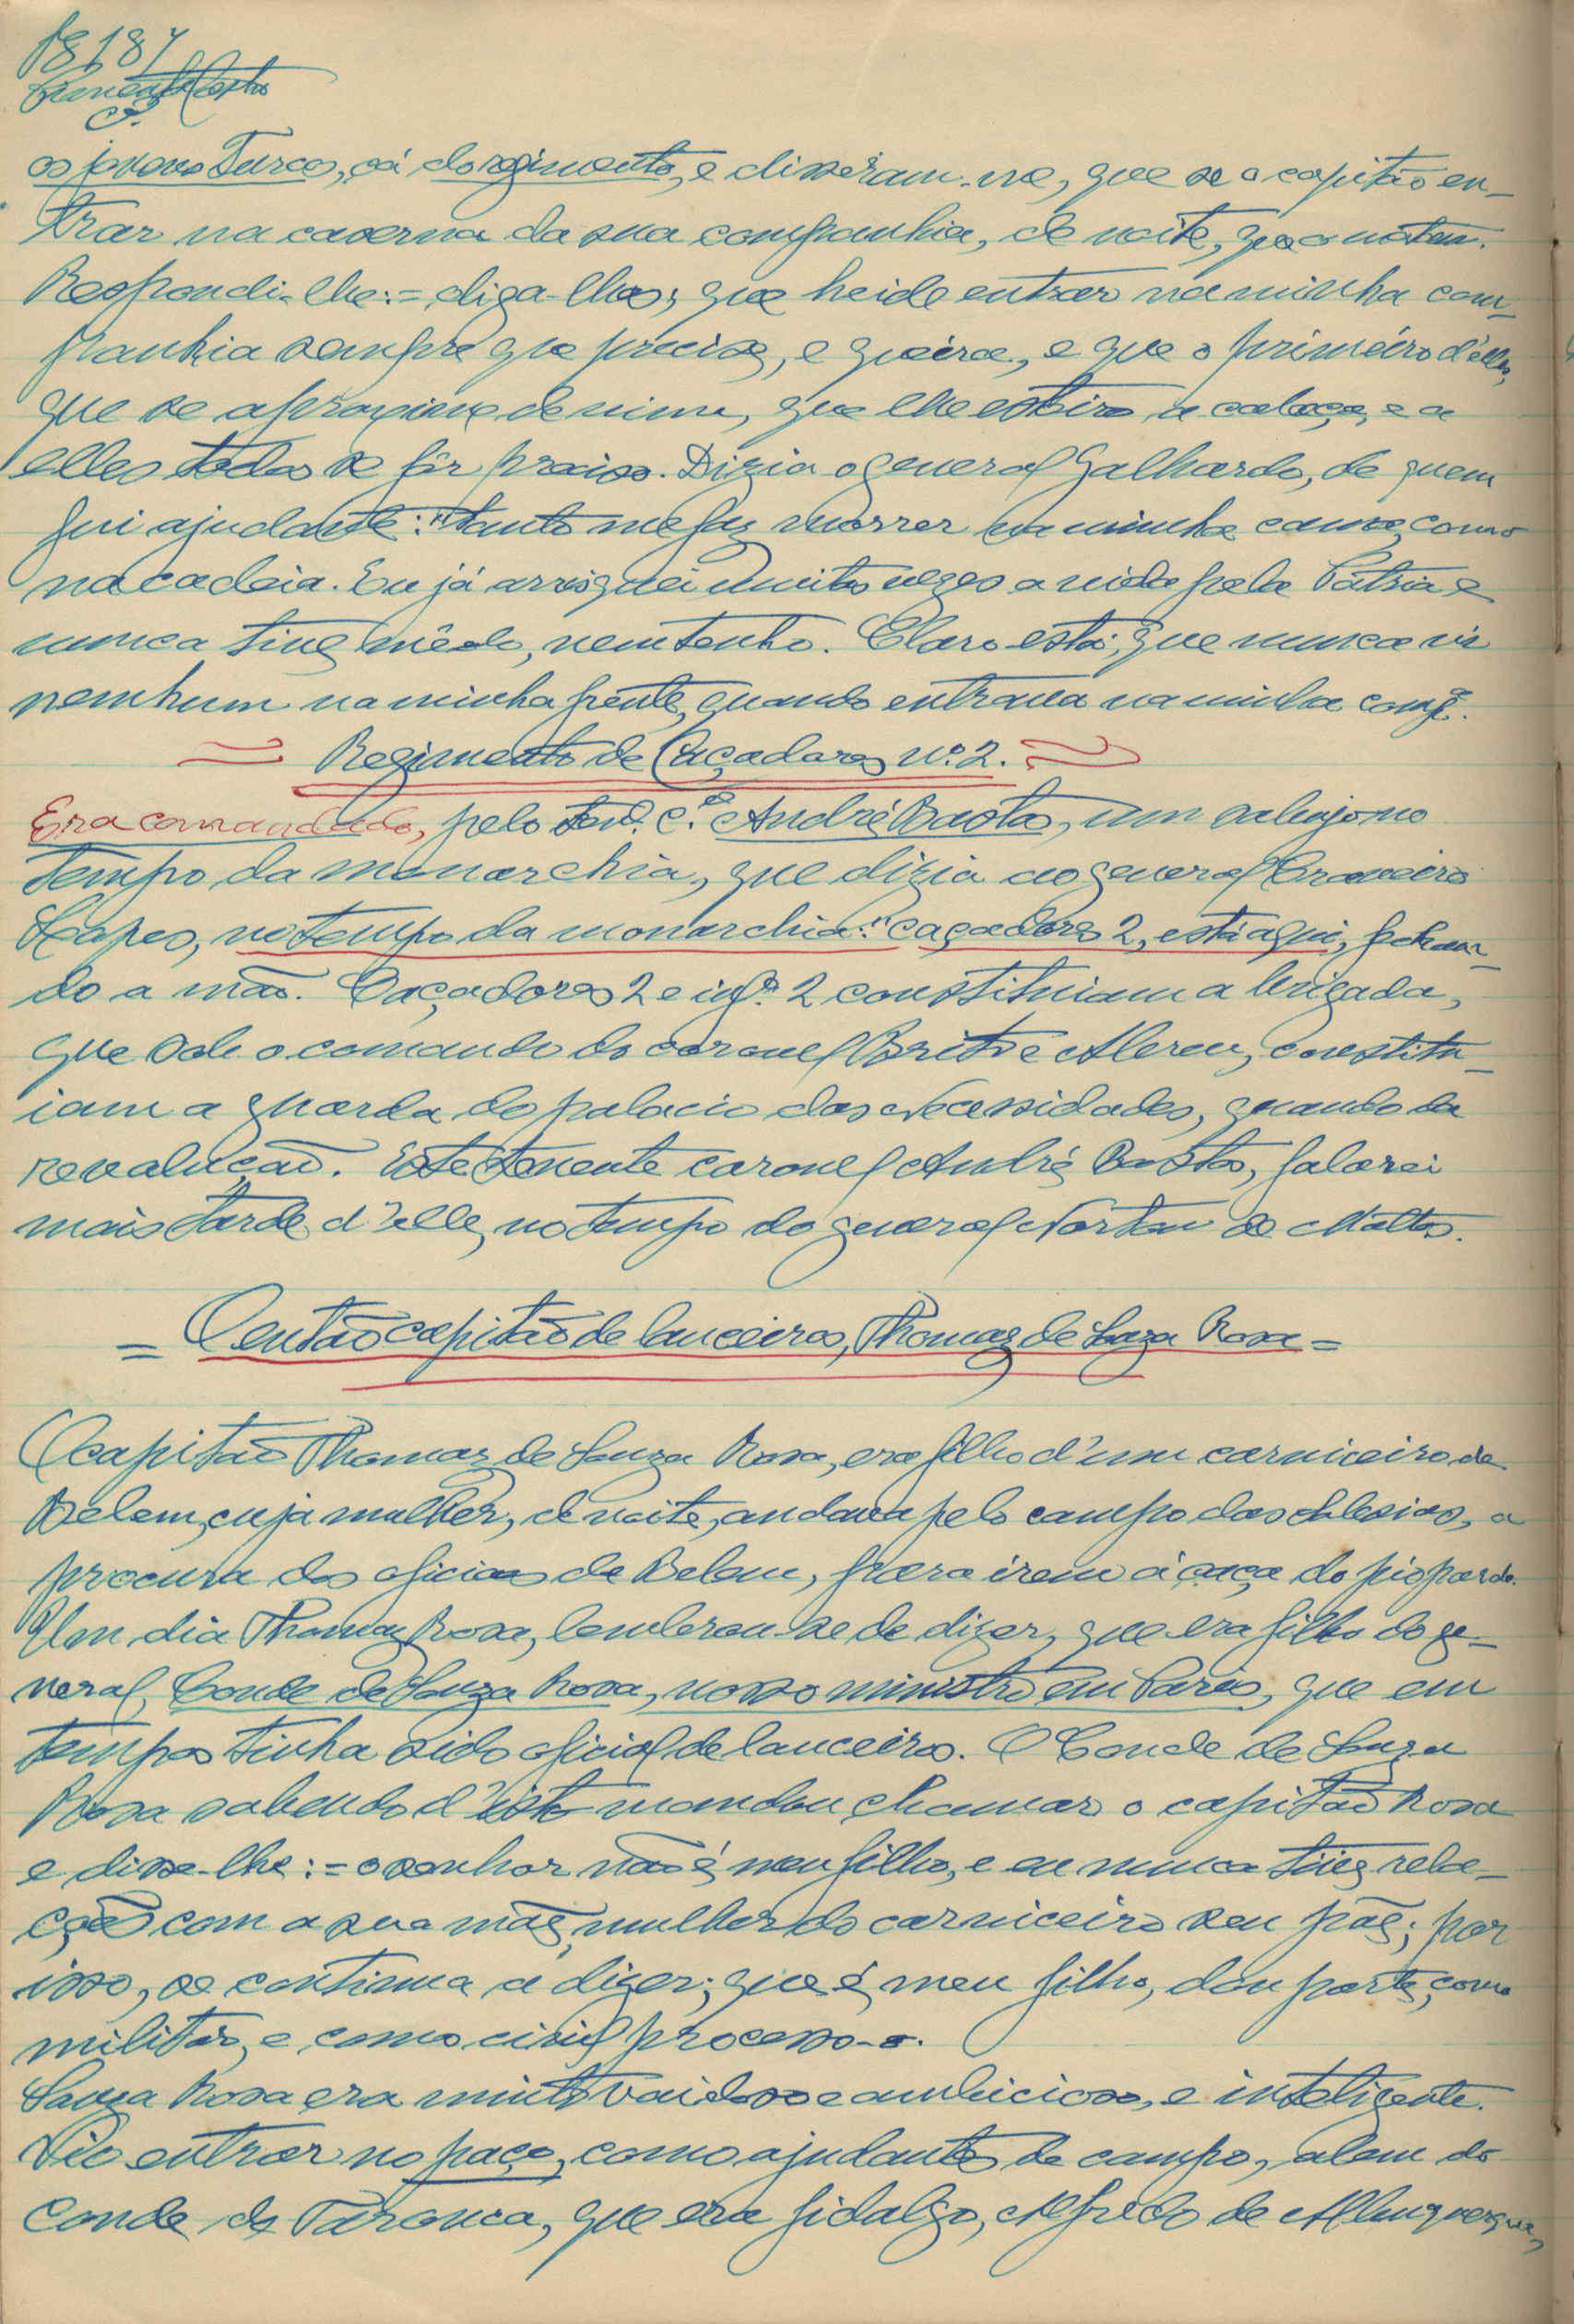 os jovens Turcos, cá do regimento, e disseram-me, que se o capitão en-
trar na caserna da sua companhia, de noite, que o matam.
Respondi-lhe:= diga-lhes, que heide entrar na minha com-
panhia sempre que precise, e queira, e que o primeiro d'elles,
que se aproxime de mim, que lhe estoiro a cabeça, e a
elles todos se fôr preciso. Dizia o general Galhardo, de quem
fui ajudante: "tanto me faz morrer na minha cama, como
na cadeia. Eu já arrisquei muitas vezes a vida pela Pátria e
nunca tive mêdo, nem tenho. Claro está; que nunca vi
nenhum na minha frente, quando entrava na minha comp.ª
Regimento de Caçadores nº. 2.
Era comandado, pelo ten. C.el André Bastos, um sabujo no
tempo da monarchia, que dizia ao general Craveiro
Lopes, no tempo da monarchia: "caçadores 2, está aqui, fechan-
do a mão. Caçadores 2 e inf.ª 2 constituiam a brigada,
que sob o comando do coronel Brito e Abreu, constitu-
iam a guarda do palacio das Necessidades, quando da
revolução. Este tenente coronel André Bastos, falarei
mais tarde d'elle, no tempo do general Norton de Mattos.
= O então capitão de lanceiros, Thomaz de Souza Rosa =
O capitão Thomaz de Souza Rosa, era filho d'um carniceiro de
Belem, cuja mulher, de noite, andava pelo campo das Salesias, a
procura dos oficiaes de Belem, para irem á caça do pio pardo.
Um dia Thomaz Rosa, lembrou-se de dizer, que era filho do ge-
neral, Conde de Souza Rosa, nosso ministro em Paris, que em
tempos tinha sido oficial de lanceiros. O Conde de Souza
Rosa sabendo d'isto mandou chamar o capitão Rosa
e disse-lhe:= o senhor não é meu filho, e eu nunca tive rela-
ção com a sua mãe, mulher do carniceiro seu páe; por
isso, se continua a dizer; que é meu filho, dou parte, como
militar, e como civil processo-o.
Souza Rosa era muito vaidoso e ambicioso, e inteligente.
Vio entrar no paço, como ajudantes de campo, alem do
Conde de Tarouca, que era fidalgo, Alfredo de Albuquerque,